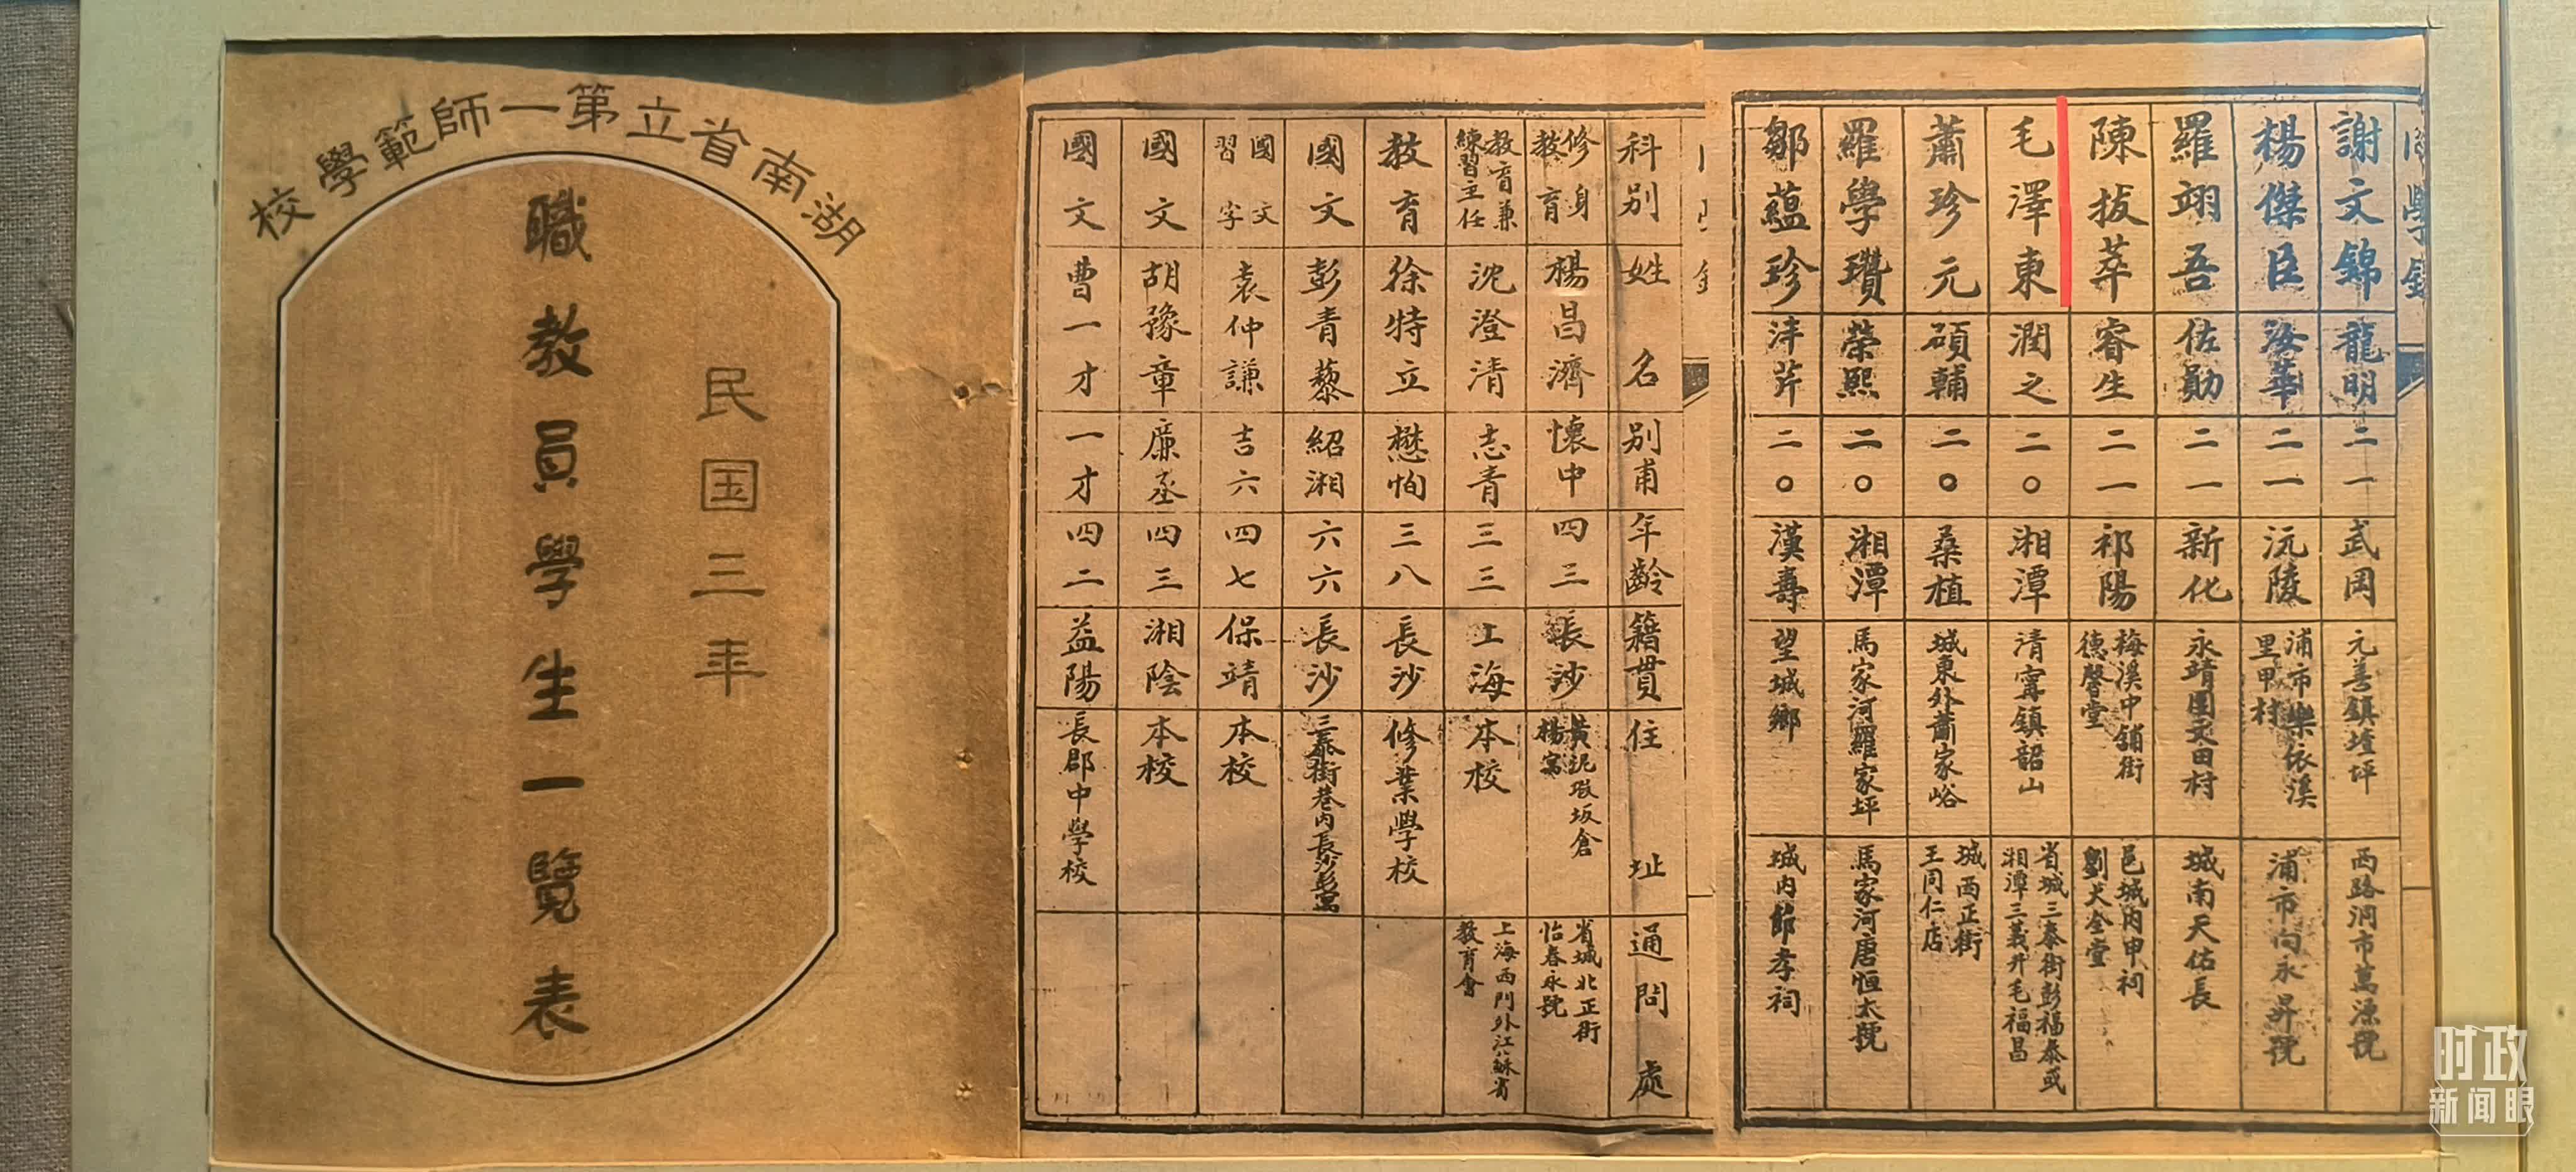 湖南省立第一師範學校
民国三年
職教員學生一覽表
科别 姓名 别甫 年齡 籍貫 住址 通問處
修身教育 楊昌濟 懷中 四三 長沙 黃泥塅坂倉楊寓 省城北正街怡春永號
教育兼練習主任 沈澄清 志青 三三 上海 本校 上海西門外江蘇省教育會
教育 徐特立 懋恂 三八 長沙 修業學校
國文 彭青藜 紹湘 六六 長沙 三泰街巷內長沙彭寓
國文習字 袁仲謙 吉六 四七 保靖 本校
國文 胡豫章 廉丞 四三 湘陰 本校
國文 曹一才 一才 四二 益陽 長郡中學校
同學錄
謝文錦 龍明 二一 武岡 元善鎮墥坪 西路洞市萬源號
楊傑臣 海華 二一 沅陵 浦市樂依溪里甲村 浦市向永昇號
羅翊吾 佐勛 二一 新化 永靖團炆田村 城南天佑長
陳拔萃 睿生 二一 祁陽 梅溪中舖街德馨堂 邑城內申祠劉大全堂
毛澤東 潤之 二〇 湘潭 清甯鎮韶山 省城三泰街彭福泰或湘潭三義升毛福昌
蕭珍元 碩輔 二〇 桑植 城東外蕭家峪 城西正街王同仁店
羅學瓚 榮熙 二〇 湘潭 馬家河羅家坪 馬家河唐恒太號
鄒蘊珍 泮芹 二〇 漢壽 望城鄉 城内節孝祠
时政
新闻眼